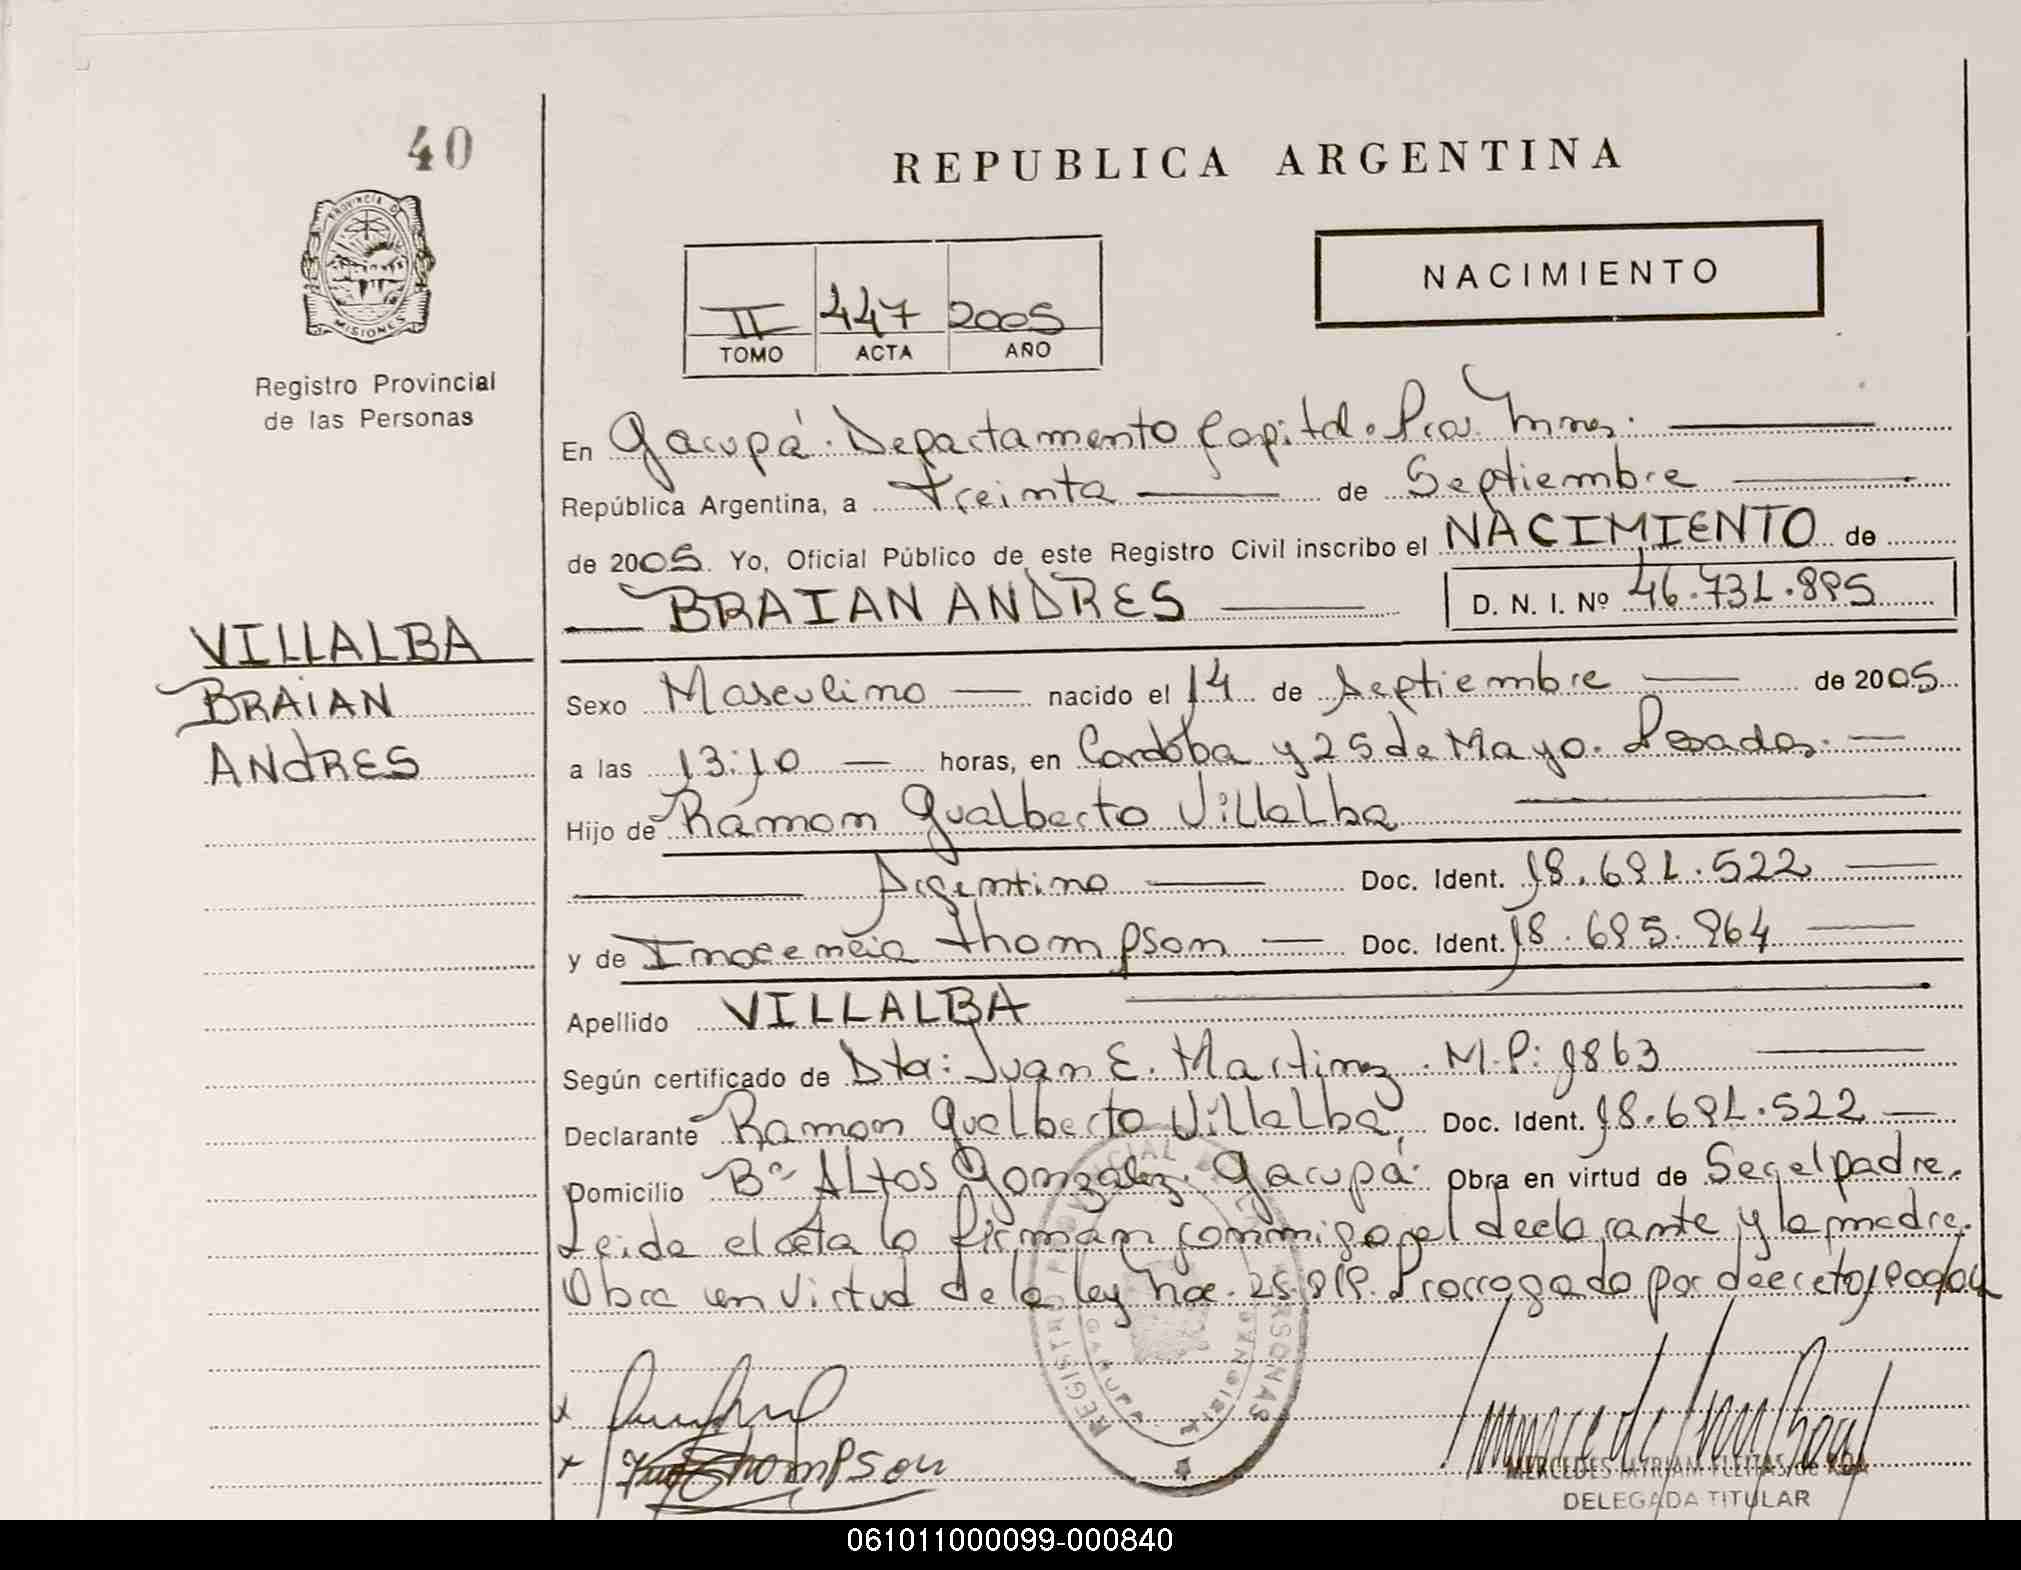 40
REPUBLICA ARGENTINA
PROVINCIA D
MISIONES
Registro Provincial
de las Personas
NACIMIENTO
II 447 2005
TOMO ACTA AÑO
En Garupá. Departamento Capital. Pcia. Mnes.
República Argentina, a treinta de Septiembre
de 2005. Yo, Oficial Público de este Registro Civil inscribo el NACIMIENTO de
BRAIAN ANDRES D. N. I. Nº 46.731.895
VILLALBA
BRAIAN
ANDRES
Sexo Masculino nacido el 14 de Septiembre de 2005
a las 13:10 horas, en Cordoba y 25 de Mayo. Posadas.
Hijo de Ramon Gualberto Villalba
Argentino Doc. Ident. 18.691.522
y de Inocencia Thompson Doc. Ident. 18.695.964
Apellido VILLALBA
Según certificado de Dta: Juan E. Martinez. M.P: 1863
Declarante Ramon Gualberto Villalba, Doc. Ident. 18.691.522
Domicilio Bº Altos Gonzalez. Garupá. Obra en virtud de Ser el padre.
Leida el acta la firman conmigo el declarante y la madre.
Obra en virtud de la ley nac. 25.819. Prorrogado por decreto
Thompson
MERCEDES MYRIAM FLEITAS de ROA
DELEGADA TITULAR
061011000099-000840